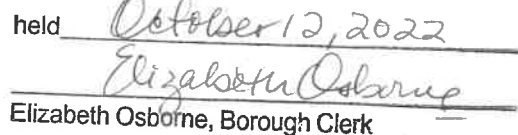 held October 12, 2022
Elizabeth Osborne
Elizabeth Osborne, Borough Clerk